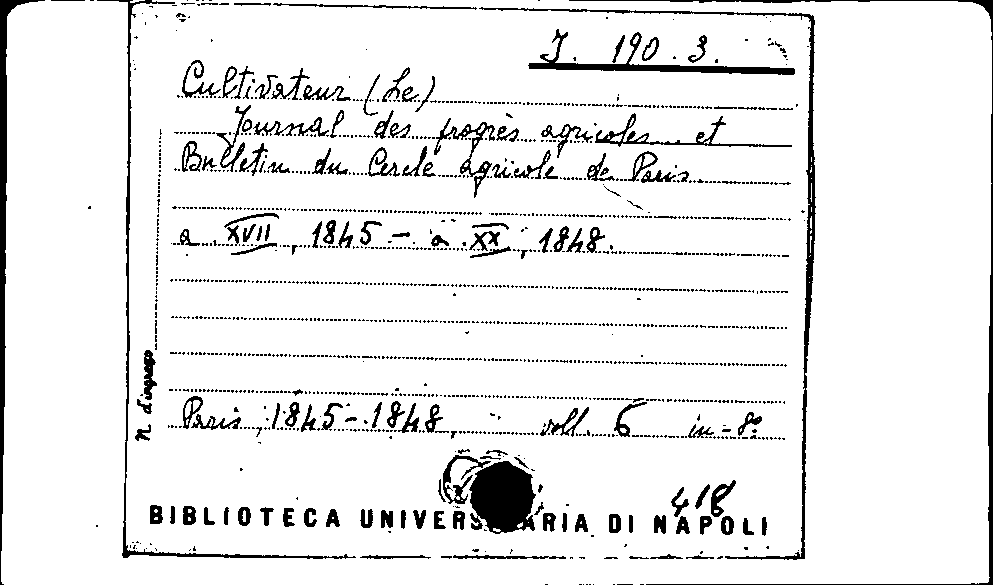 J. 190. 3.
Cultivateur (Le)
Journal des progrès agricoles et
Bulletin du Cercle agricole de Paris.
a. XVII, 1845 - a. XX, 1848.
N. d'ingresso
Paris, 1845-1848, voll. 6 in-8º
418
BIBLIOTECA UNIVERSITARIA DI NAPOLI